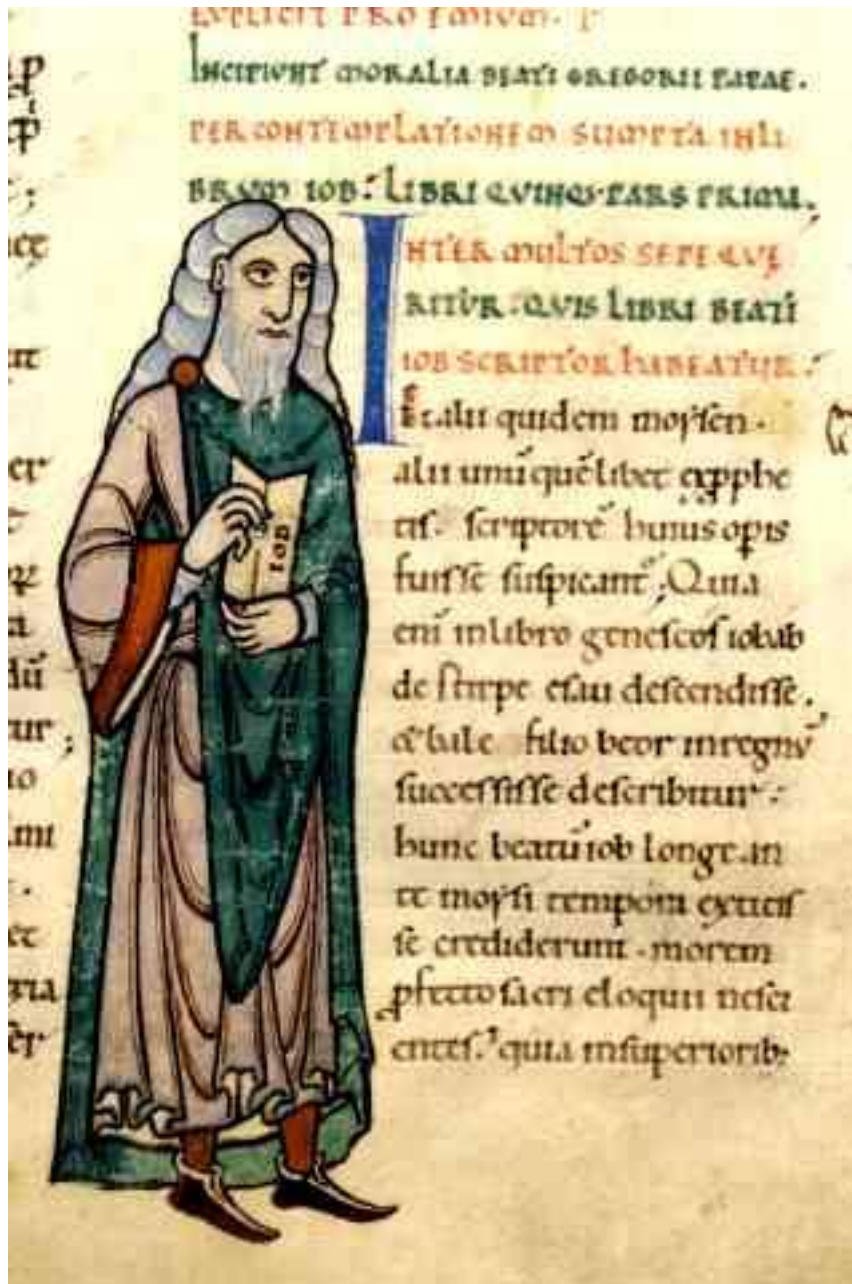 EXPLICIT PROEMIUM.
INCIPIUNT MORALIA BEATI GREGORII PAPAE.
PER CONTEMPLATIONEM SUMPTA IN LI
BRUM IOB. LIBRI QUINQ. PARS PRIMA.
INTER MULTOS SEPE QUE
RITUR. QUIS LIBRI BEATI
IOB SCRIPTOR HABEATUR.
Et alii quidem moysen.
alii unūquēlibet ex pphe
tis. scriptorē huius opis
fuisse suspicant; Quia
eni in libro geneseos iobab
de stirpe esau descendisse.
& bale filio beor in regnū
successisse describitur.
hunc beatū iob longe an
te moysi tempora extitis
se crediderunt. morem
pfecto sacri eloquii nesci
entes. quia in superiorib;
IOB